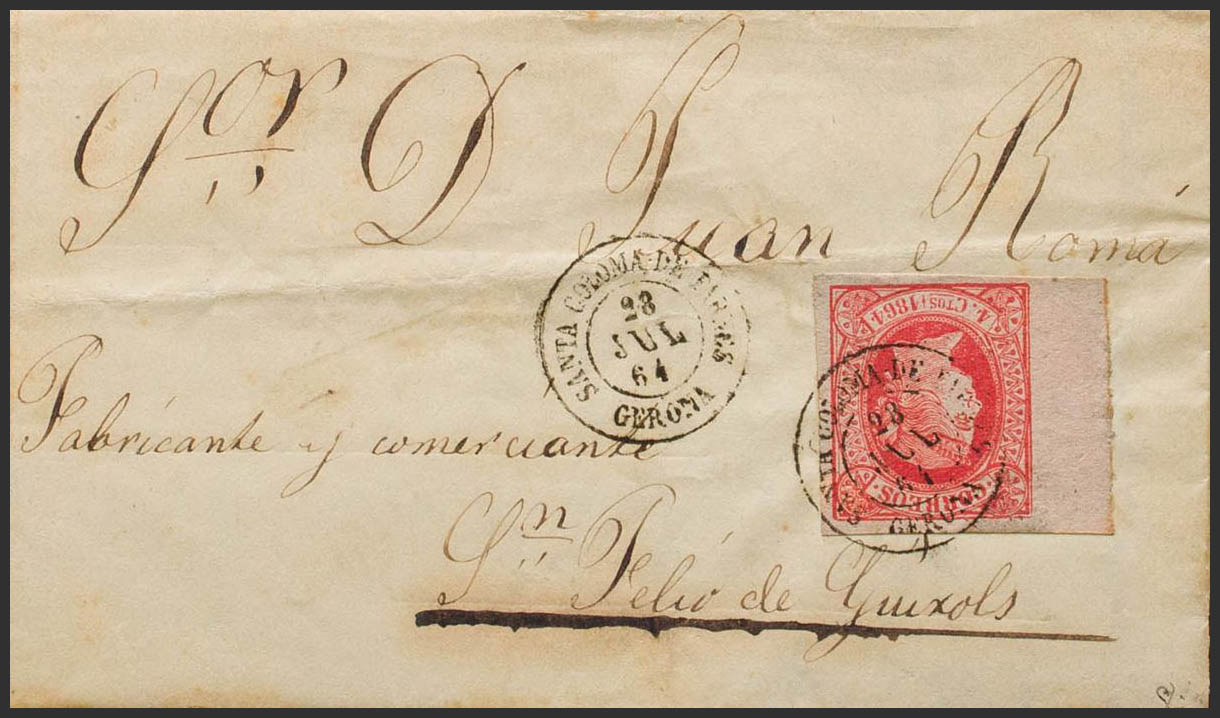 Sor D Juan Romá
SANTA COLOMA DE FARNES
28
JUL
64
GERONA
4. CTOS 1864
CORREOS
SANTA COLOMA DE FAR
28
GERONA
Fabricante y comerciante
Sn Feliô de Guixols